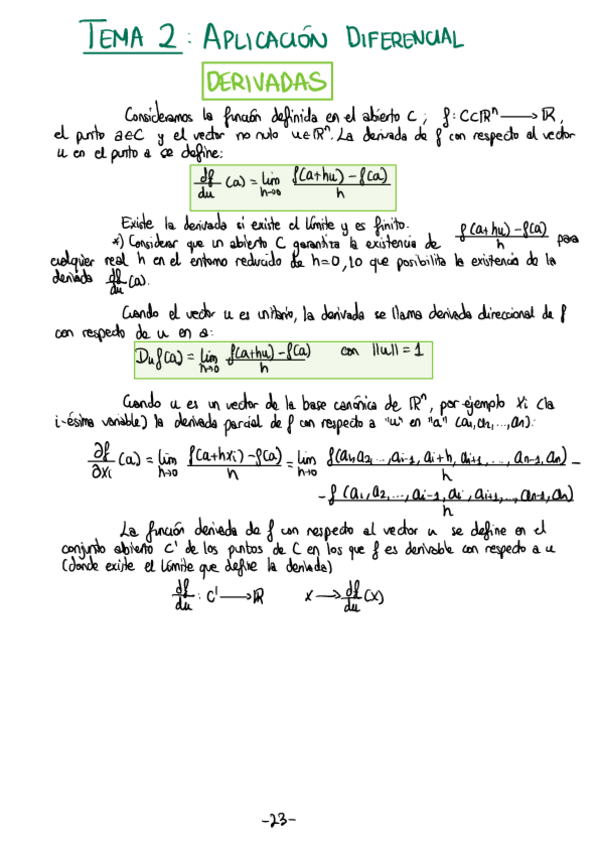 TEMA 2: APLICACIÓN DIFERENCIAL
DERIVADAS
Consideramos la función definida en el abierto C; f: C⊂ℝⁿ ⟶ ℝ,
el punto a∈C y el vector no nulo u∈ℝⁿ. La derivada de f con respecto al vector
u en el punto a se define:
df/du (a) = lim h→0 f(a+hu) − f(a) / h
Existe la derivada si existe el límite y es finito.
*) Considerar que un abierto C garantiza la existencia de f(a+hu) − f(a) / h para
cualquier real h en el entorno reducido de h=0, lo que posibilita la existencia de la
derivada df/du (a).
Cuando el vector u es unitario, la derivada se llama derivada direccional de f
con respecto de u en a:
Duf(a) = lim h→0 f(a+hu) − f(a) / h con ||u|| = 1
Cuando u es un vector de la base canónica de ℝⁿ, por ejemplo xi (la
i-ésima variable) la derivada parcial de f con respecto a "u" en "a" (a₁,a₂,...,an):
∂f/∂xi (a) = lim h→0 f(a+hxi) − f(a) / h = lim h→0 f(a₁,a₂,...,ai-1,ai+h,ai+1,...,an-1,an) / h −
− f(a₁,a₂,...,ai-1,ai,ai+1,...,an-1,an) / h
La función derivada de f con respecto al vector u se define en el
conjunto abierto C' de los puntos de C en los que f es derivable con respecto a u
(donde existe el límite que define la derivada)
df/du : C' ⟶ ℝ x ⟶ df/du (x)
-23-